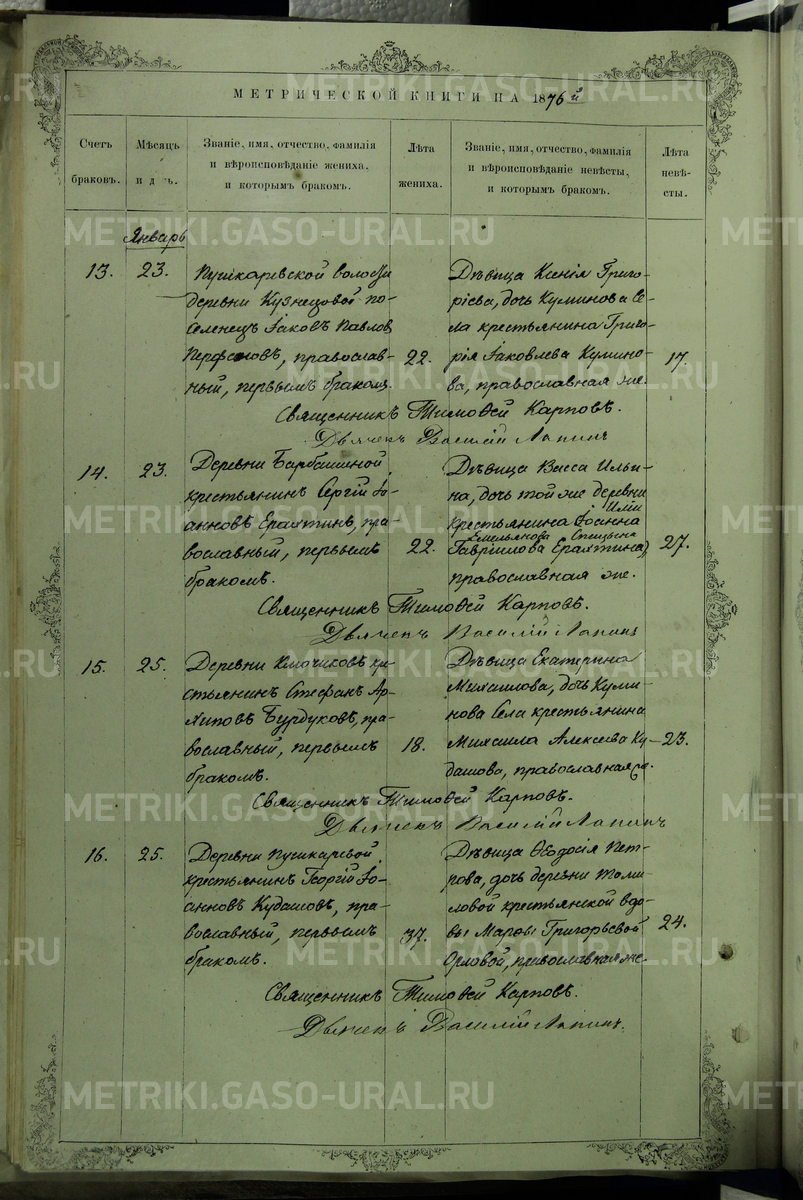 МЕТРИЧЕСКОЙ КНИГИ НА 1876й
Счетъ браковъ.
Мѣсяцъ и день.
Званіе, имя, отчество, фамилія и вѣроисповѣданіе жениха, и которымъ бракомъ.
Лѣта жениха.
Званіе, имя, отчество, фамилія и вѣроисповѣданіе невѣсты, и которымъ бракомъ.
Лѣта невѣсты.
Январь
13. 23.
Пушкаревской волости
деревни Кузнецовой по-
селенецъ Іаковъ Павловъ
православ-
ный, первымъ бракомъ.
22.
Дѣвица Ксенія Григо-
ріева, дочь Куминова Се-
ла крестьянина Григо-
рія Іаковлева Кумино-
ва, православная же.
17.
Священникъ Тимофей Карповъ.
Дьячекъ Василій Лапинъ
14. 23.
Деревни Барбашиной
крестьянинъ Сергій Іо-
анновъ Ерахтинъ, пра-
вославный, первымъ
бракомъ.
22.
Дѣвица Васса Ильи-
на, дочь той же деревни
Иліи
крестьянина Іоанна
Емельянова Спицына
Гавриилова Ерахтина,
православная же.
27.
Священникъ Тимофей Карповъ.
Дьячекъ Василій Лапинъ
15. 25.
Деревни Ключиковъ кре-
стьянинъ Стефанъ Ар-
хиповъ Бурдуковъ, пра-
вославный, первымъ
бракомъ.
18.
Дѣвица Екатерина
Михаилова, дочь Куми-
нова Села крестьянина
Михаила Алексѣева Ку-
дашова, православная
23.
Священникъ Тимофей Карповъ.
Дьячекъ Василій Лапинъ
16. 25.
Деревни Пушкаревой
крестьянинъ Георгій Іо-
анновъ Кудашовъ, пра-
вославный, первымъ
бракомъ.
37.
Дѣвица Ѳеодосія Пет-
рова, дочь деревни Томи-
ловой крестьянской вдо-
вы Марѳы Григорьевой
Орловой, православная же.
24.
Священникъ Тимофей Карповъ.
Дьячекъ Василій Лапинъ.
METRIKI.GASO-URAL.RU